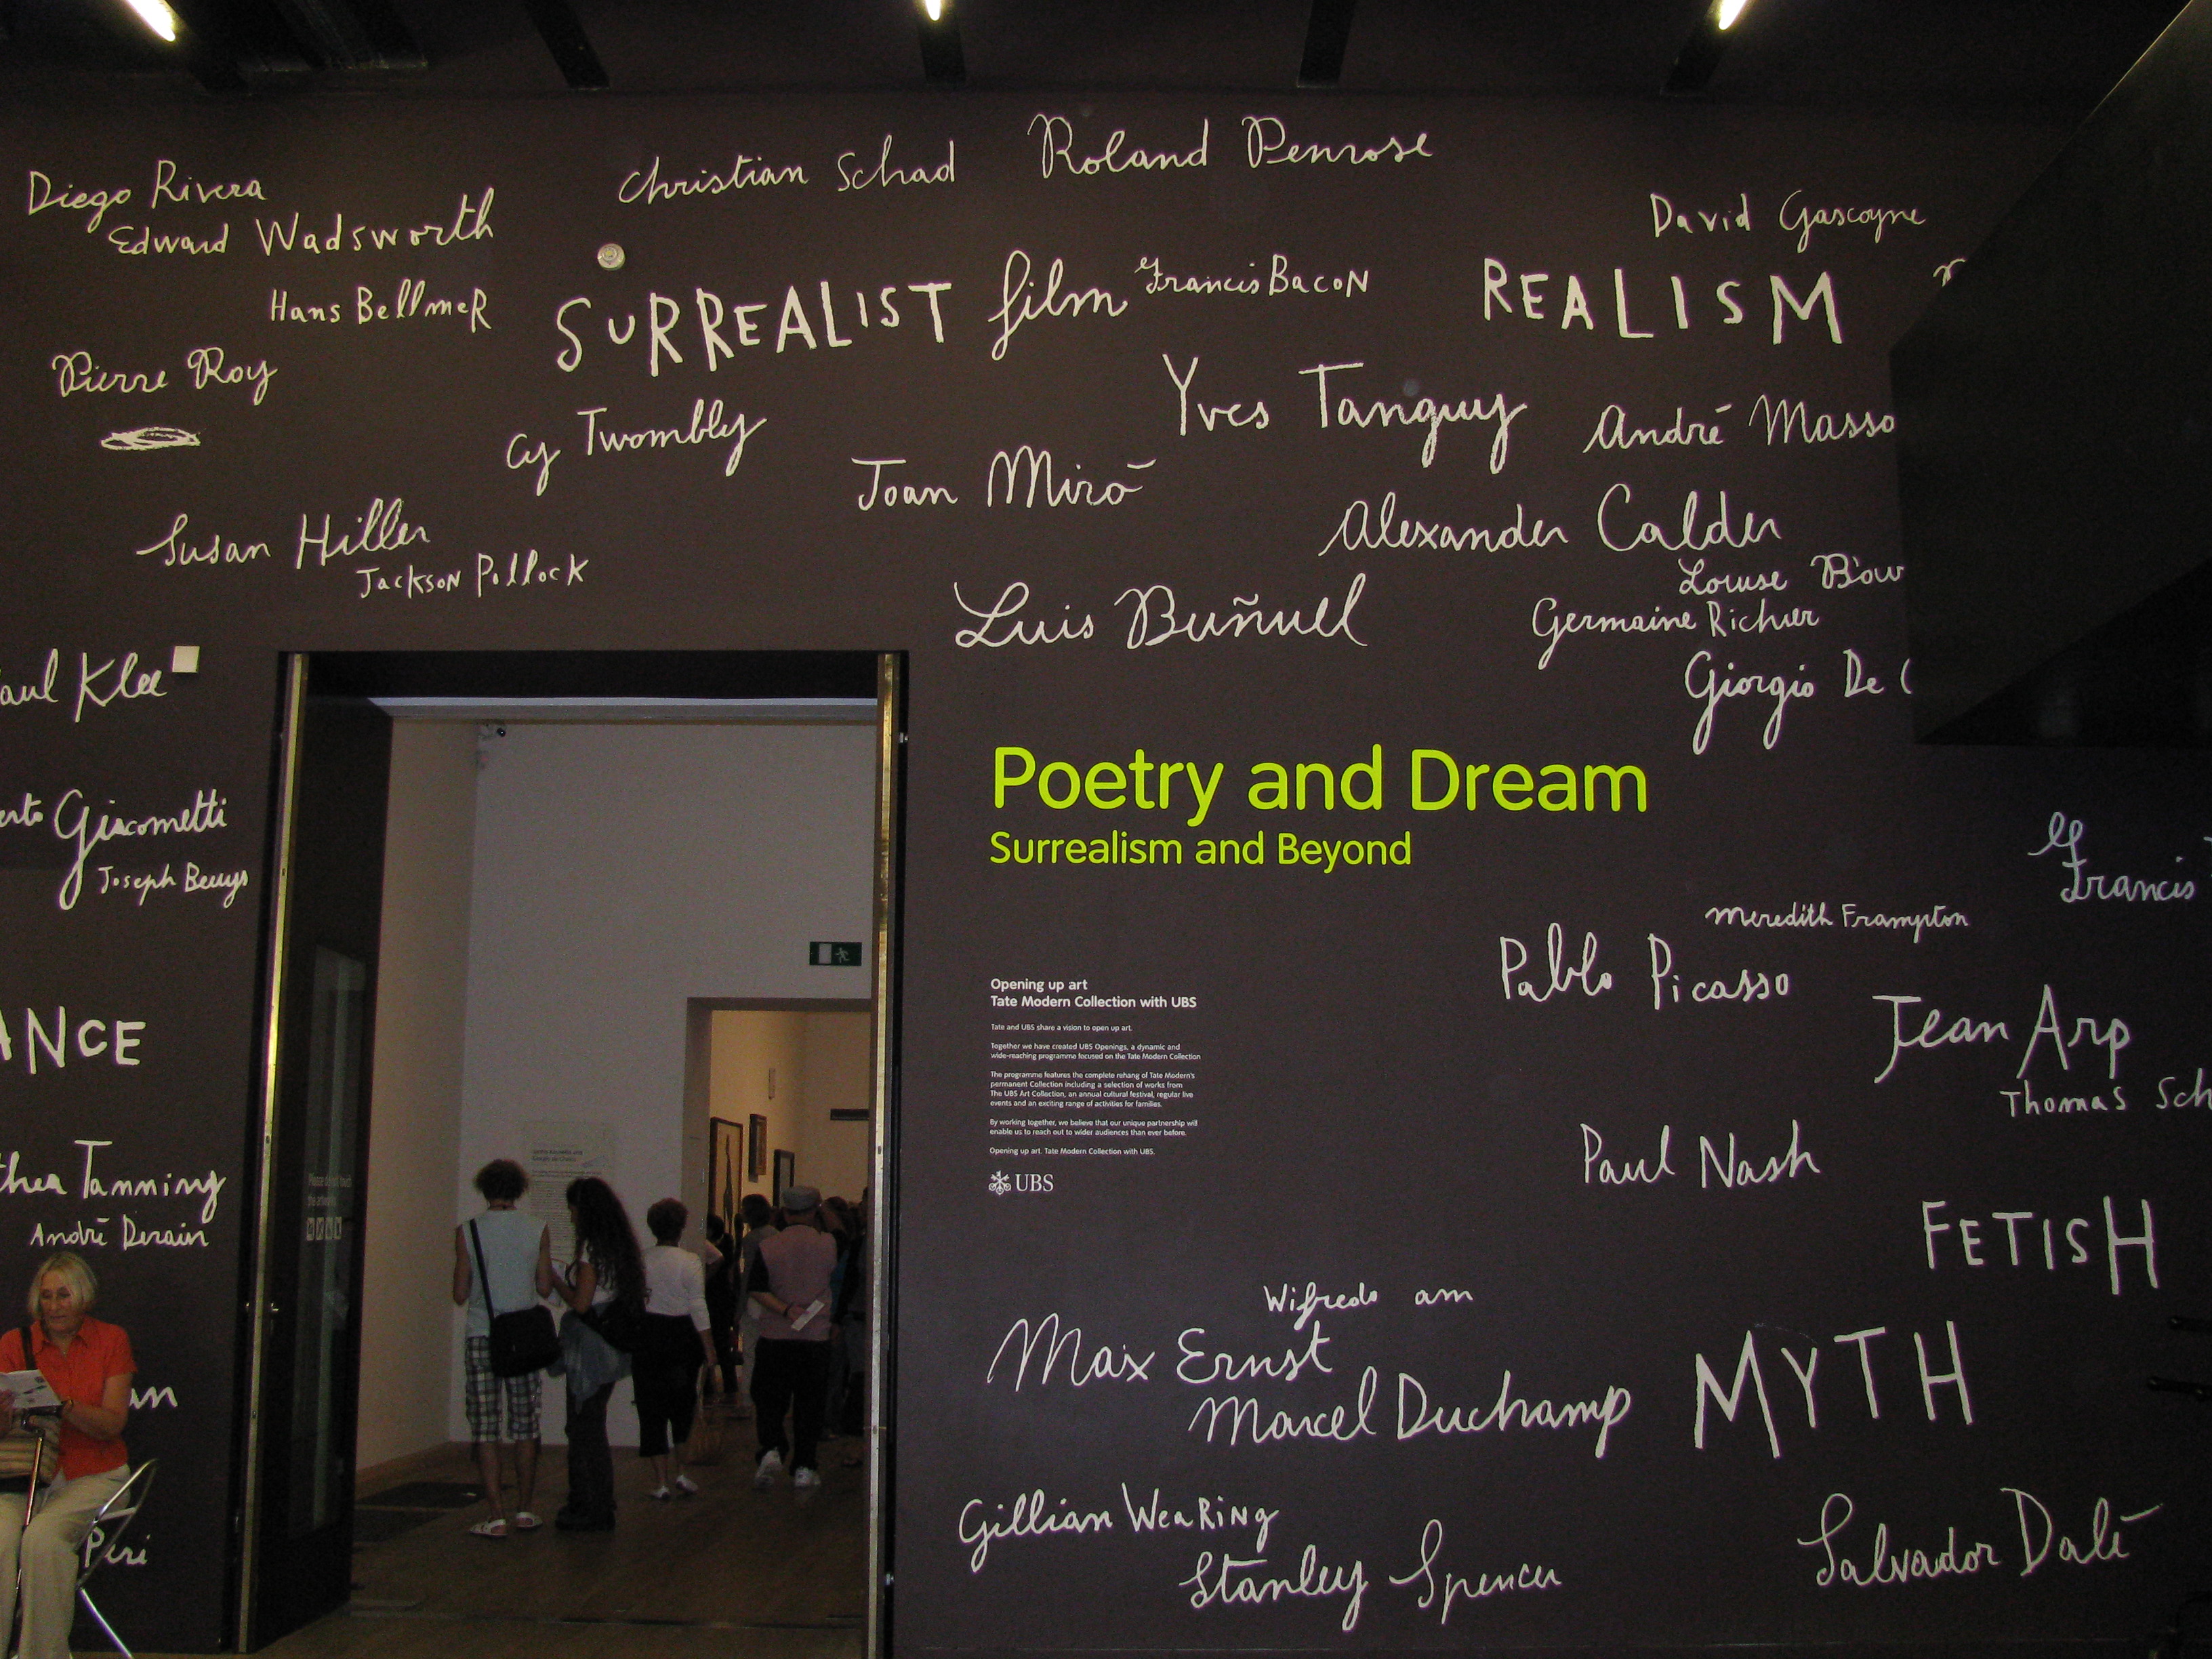 Diego Rivera
Edward Wadsworth
Christian Schad
Roland Penrose
David Gascoyne
Hans BellmeR
SuRREALIST film
Francis BacoN
REALISM
Pierre Roy
Cy Twombly
Joan Miró
Yves Tanguy
André Masso
Alexander Calder
Susan Hiller
JacksoN Pollock
Louise Bour
Germaine Richier
Luis Buñuel
Giorgio De C
aul Klee
erto Giacometti
Joseph Beuys
Poetry and Dream
Surrealism and Beyond
Francis
Meredith Frampton
Pablo Picasso
Jean Arp
Thomas Sch
Opening up art
Tate Modern Collection with UBS
Tate and UBS share a vision to open up art.
Together we have created UBS Openings, a dynamic and
wide-reaching programme focused on the Tate Modern Collection
The programme features the complete rehang of Tate Modern's
permanent Collection including a selection of works from
The UBS Art Collection, an annual cultural festival, regular live
events and an exciting range of activities for families.
By working together, we believe that our unique partnership will
enable us to reach out to wider audiences than ever before.
Opening up art. Tate Modern Collection with UBS.
UBS
ANCE
Paul Nash
FETISH
thea Tanning
André Derain
Wifredo am
Max Ernst
Marcel Duchamp
MYTH
an
Gillian WeaRiNg
Stanley Spencer
Salvador Dalí
Peri